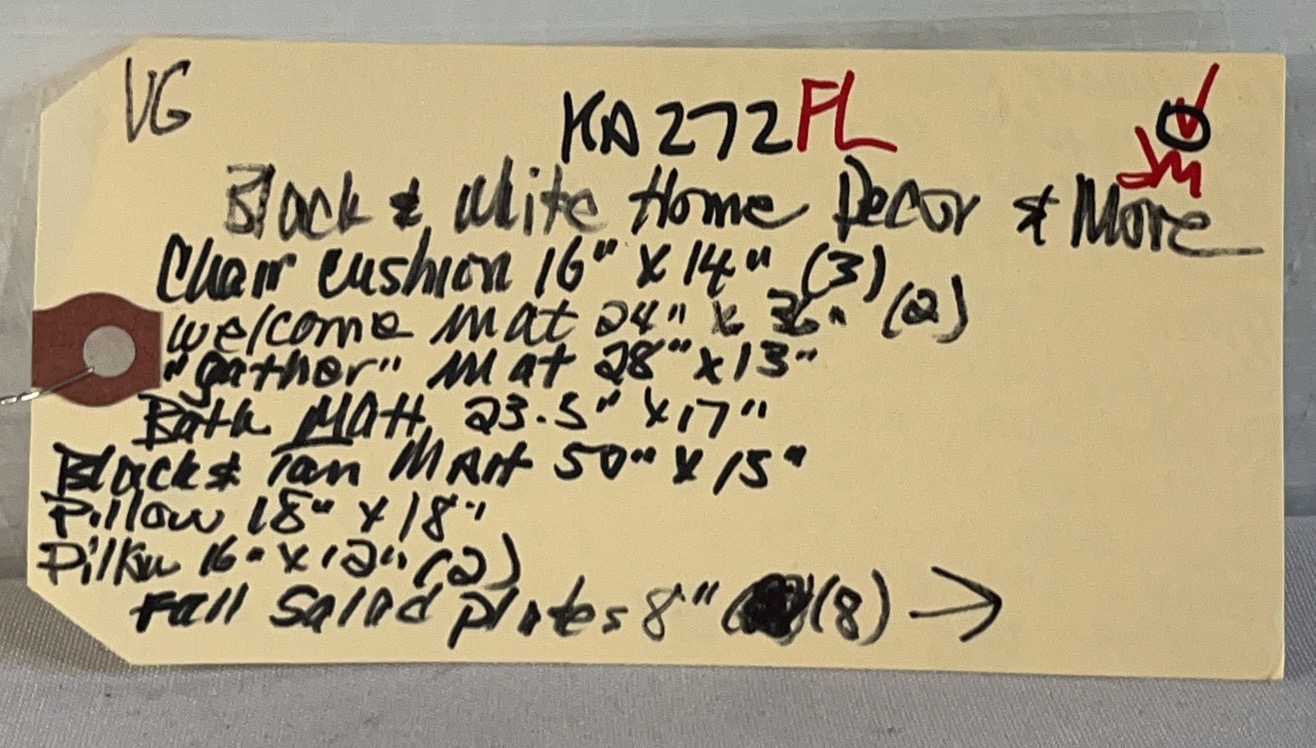 VG
KA272FL
JM
Black & White Home Decor & More
Chair Cushion 16" X 14" (3)
welcome mat 24" x 36" (2)
"gather" Mat 28" x 13"
Bath Matt 23.5" x 17"
Black & Tan Matt 50" x 15"
Pillow 18" x 18"
Pillow 16" x 12" (2)
Fall Salad plates 8" (8) →